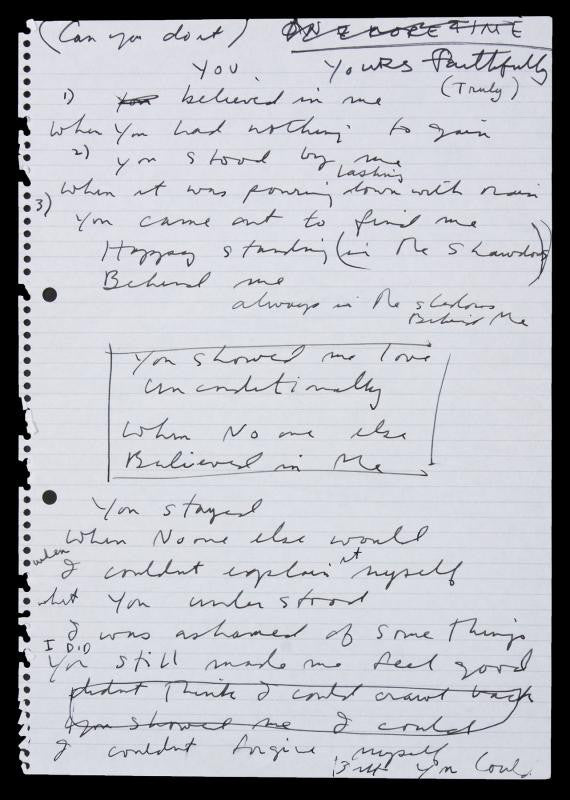 (Can you do it) ONE MORE TIME
YOU YOURS Faithfully
(Truly)
1) You believed in me
When You had nothing to gain
2) You stood by me
lashing
When it was pouring down with rain
3) You came out to find me
Happy standing (in the Shawdows)
Behind me
always in the shadows
Behind Me
You showed me love
unconditionally
When No one else
Believed in Me
You stayed
When No one else would
when
I couldnt explain it myself
but You understood
I was ashamed of some things
I DID
You still made me feel good
didnt think I could crawl back
you showed me I could
I couldnt forgive myself
But You Could